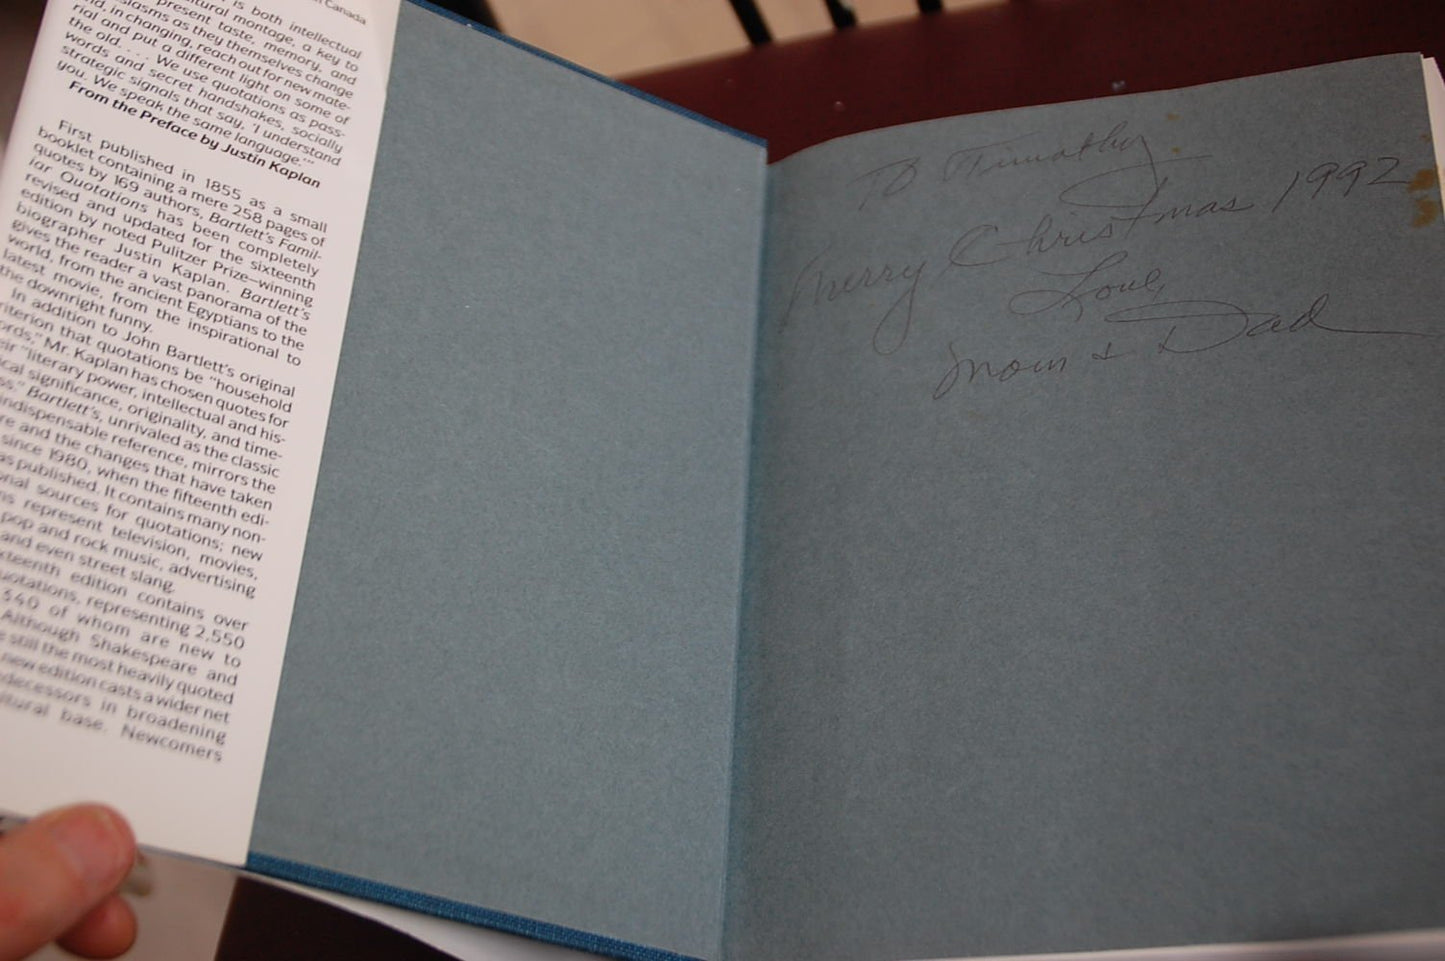 Canada
is both intellectual
tural montage, a key to
present taste, memory, and
siasms as they themselves change
nd, in changing, reach out for new mate-
rial and put a different light on some of
the old. . . . We use quotations as pass-
words and secret handshakes, socially
strategic signals that say, 'I understand
you. We speak the same language.'"
From the Preface by Justin Kaplan
First published in 1855 as a small
booklet containing a mere 258 pages of
quotes by 169 authors, Bartlett's Famil-
iar Quotations has been completely
revised and updated for the sixteenth
edition by noted Pulitzer Prize–winning
biographer Justin Kaplan. Bartlett's
gives the reader a vast panorama of the
world, from the ancient Egyptians to the
latest movie, from the inspirational to
the downright funny.
In addition to John Bartlett's original
riterion that quotations be "household
ords," Mr. Kaplan has chosen quotes for
eir "literary power, intellectual and his-
ical significance, originality, and time-
ss." Bartlett's, unrivaled as the classic
indispensable reference, mirrors the
re and the changes that have taken
since 1980, when the fifteenth edi-
as published. It contains many non-
onal sources for quotations; new
ns represent television, movies,
pop and rock music, advertising
and even street slang.
xteenth edition contains over
uotations, representing 2,550
540 of whom are new to
Although Shakespeare and
e still the most heavily quoted
new edition casts a wider net
decessors in broadening
ltural base. Newcomers
To Timothy
Merry Christmas 1992
Love,
Mom & Dad